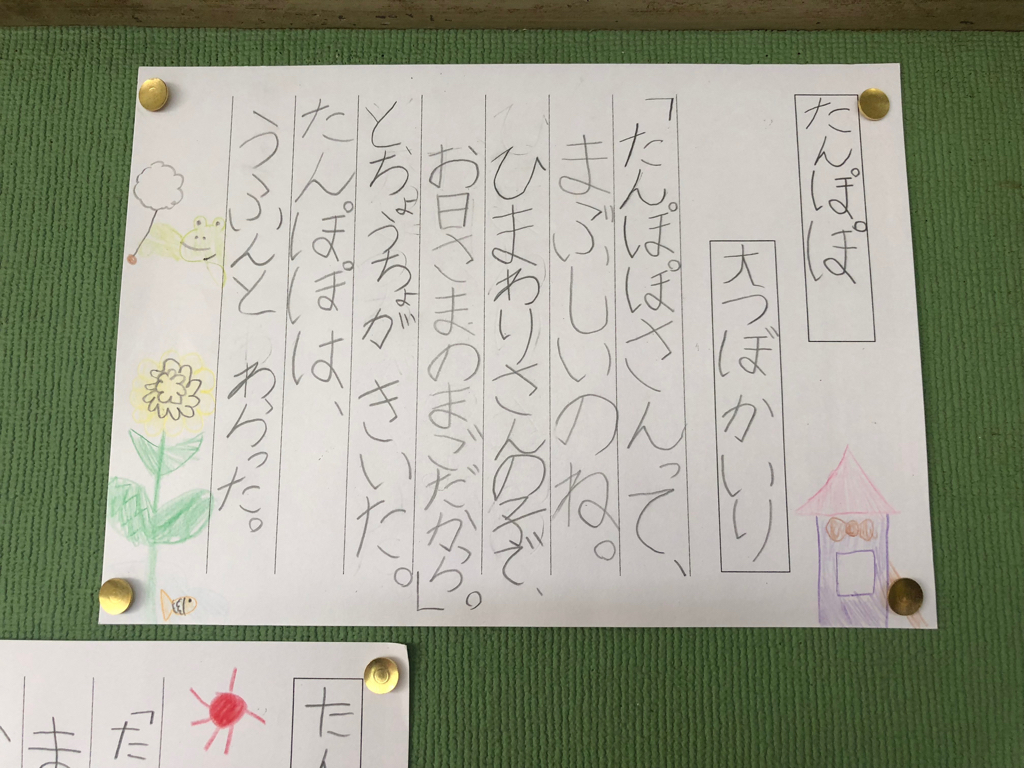 たんぽぽ
大つぼかいり
「たんぽぽさんって、
まぶしいのね。
ひまわりさんの子で、
お日さまのまごだから。」
とちょうちょが きいた。
たんぽぽは、
うふんと わらった。
たん
「た
ま